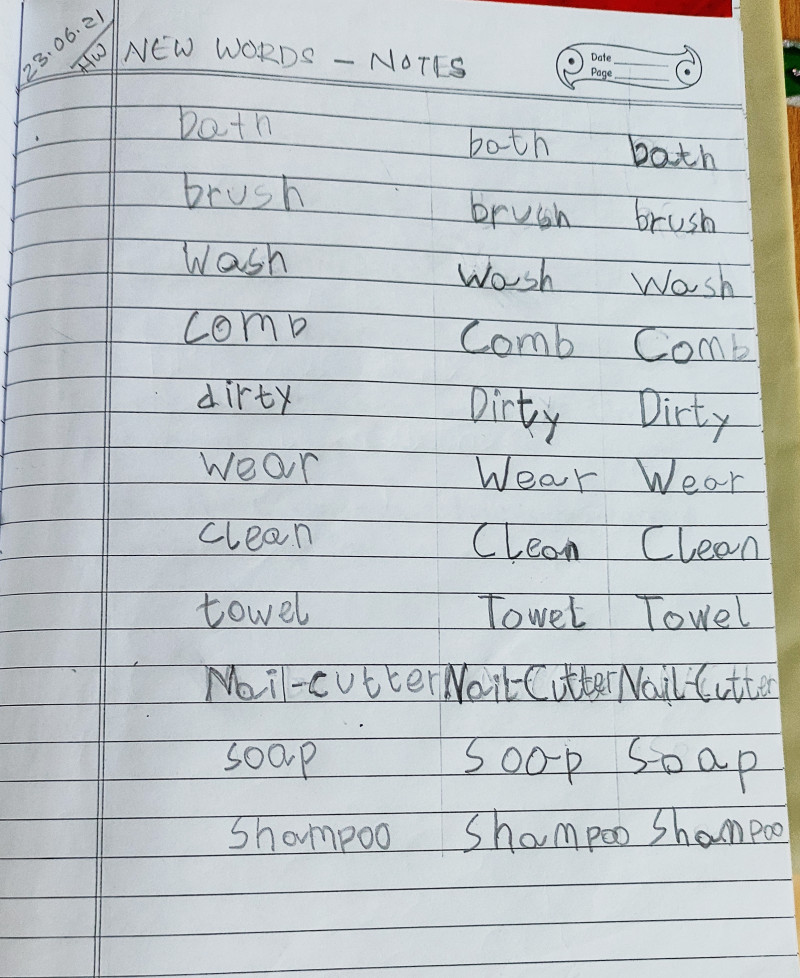 23.06.21
HW
NEW WORDS - NOTES
Date
Page
bath bath bath
brush brush brush
Wash Wash Wash
comb Comb Comb
dirty Dirty Dirty
wear Wear Wear
clean Clean Clean
towel Towel Towel
Nail-cutter Nail-Cutter Nail-Cutter
soap Soap Soap
Shampoo Shampoo Shampoo